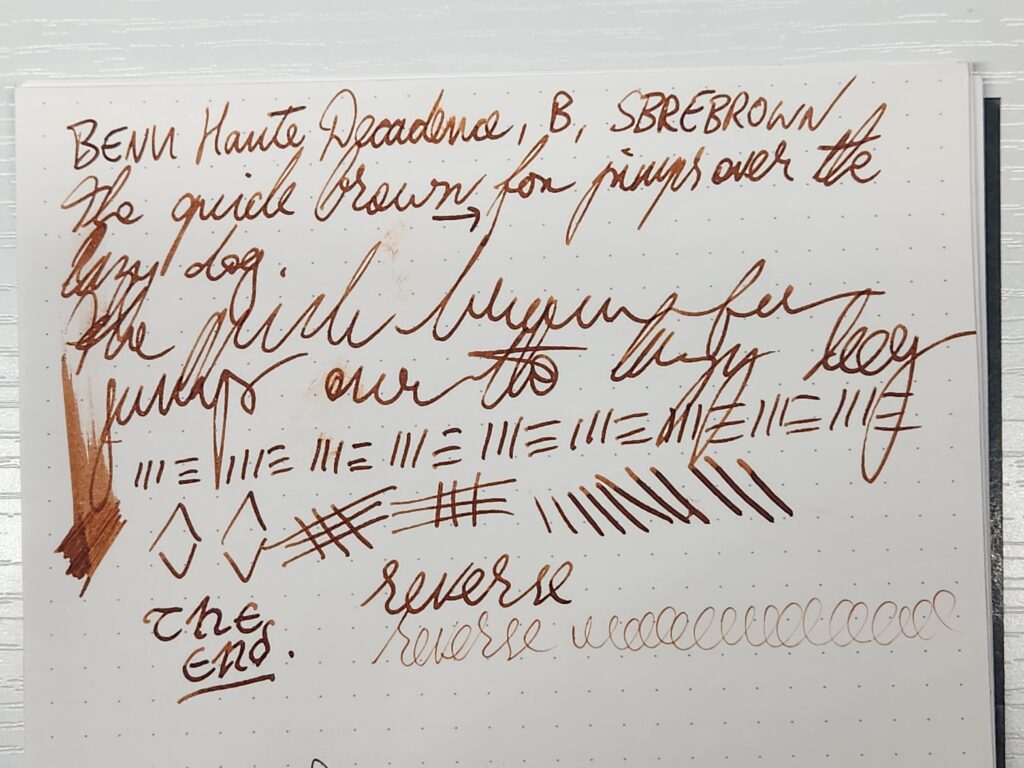 BENU Haute Decadence, B, SBREBROWN
the quick brown fox jumps over the
lazy dog.
the quick brown fox
jumps over the lazy dog
reverse
reverse
THE
END.